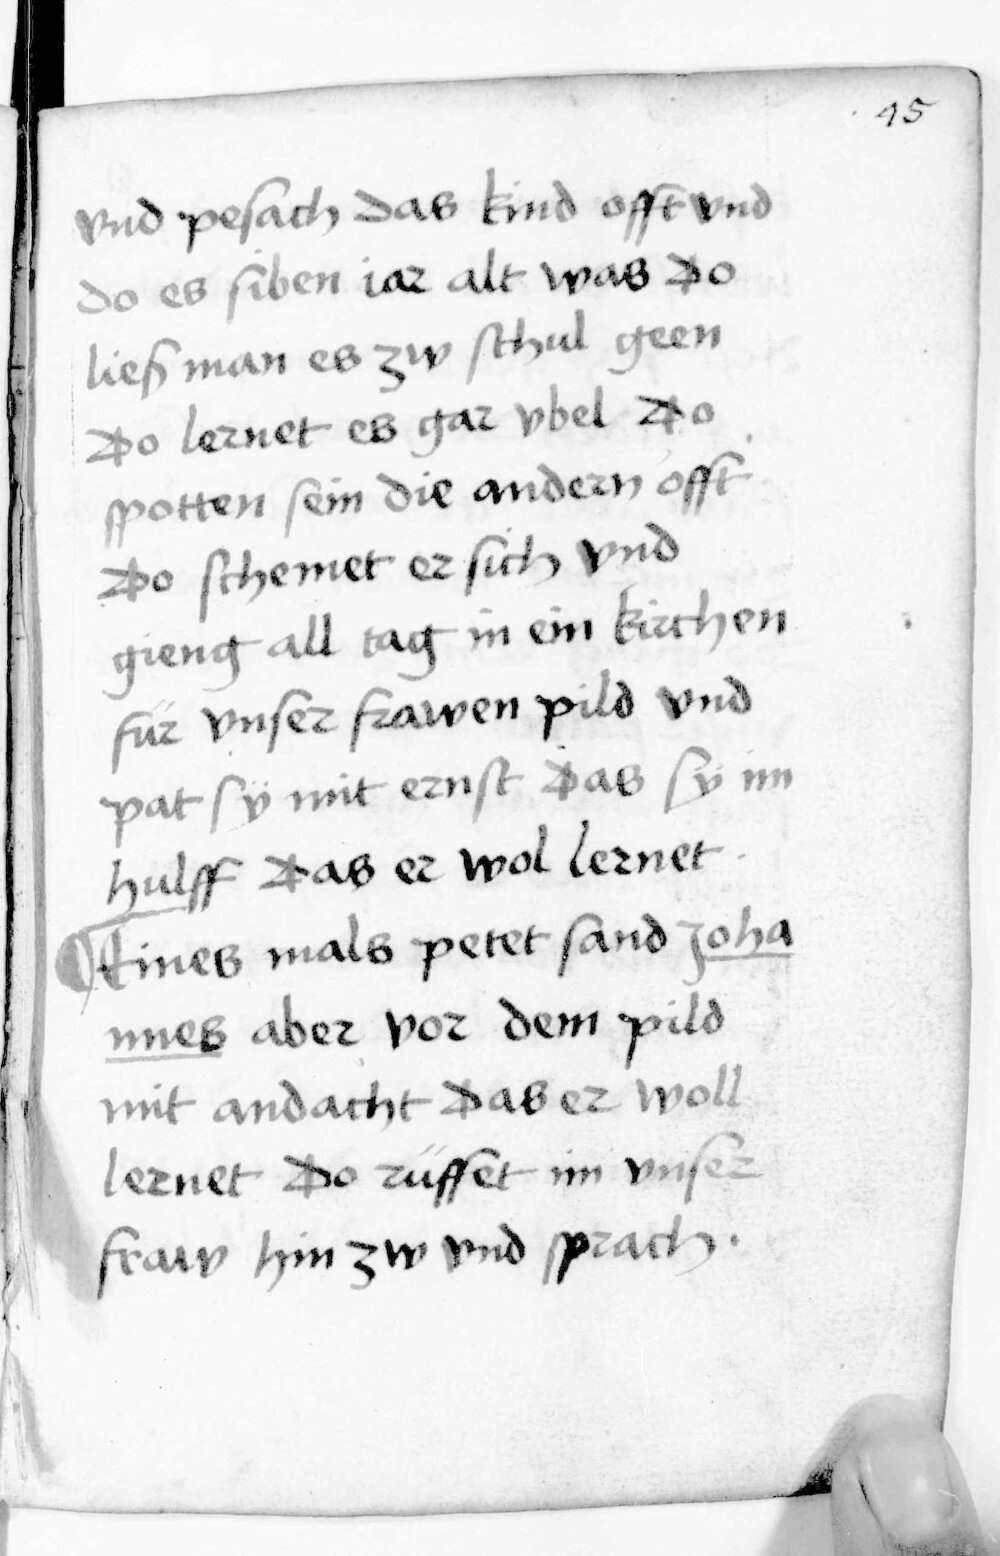 45
vnd pesach das kind offt vnd
do es siben iar alt was Do
ließ man es zw schul geen
Do lernet es gar vbel Do
spotten sein die andern offt
Do schemet er sich vnd
gieng all tag in ein kirchen
für vnser frawen pild vnd
pat sÿ mit ernst Das sÿ im
hulff Das er wol lernet.
Eines mals petet sand Joha
nnes aber vor dem pild
mit andacht Das er woll
lernet Do rüffet im vnser
fraw hin zw vnd sprach.